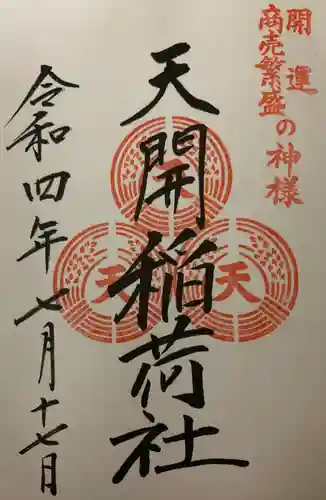 開運
商売繁盛の神様
天開稲荷社
天
天
天
令和四年七月十七日